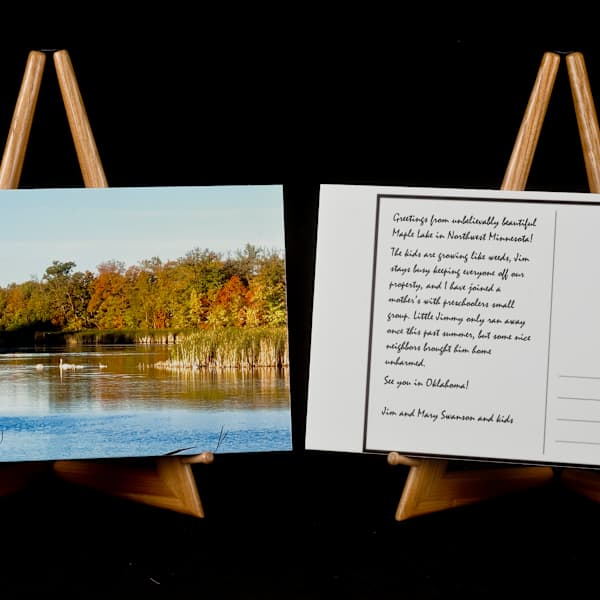 Greetings from unbelievably beautiful
Maple Lake in Northwest Minnesota!
The kids are growing like weeds, Jim
stays busy keeping everyone off our
property, and I have joined a
mother's with preschoolers small
group. Little Jimmy only ran away
once this past summer, but some nice
neighbors brought him home
unharmed.
See you in Oklahoma!
Jim and Mary Swanson and kids